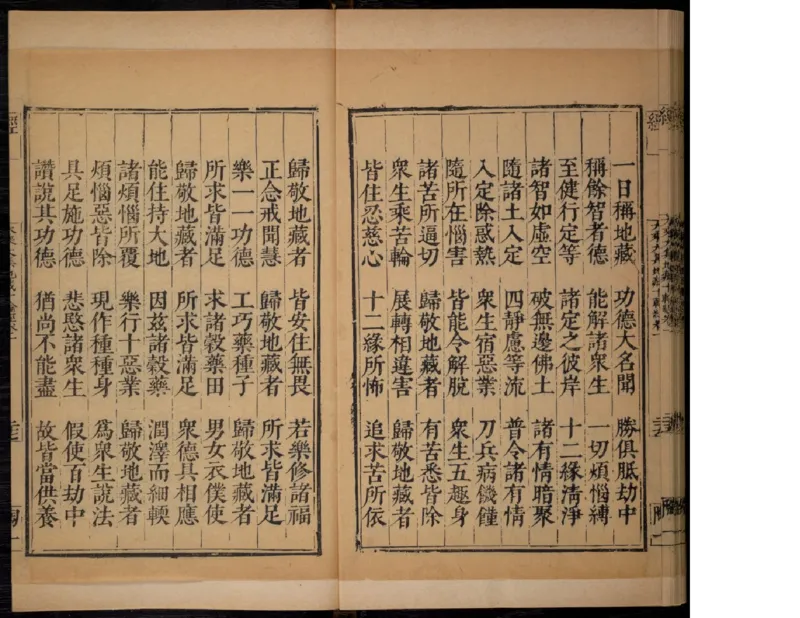 一日稱地藏　功德大名聞　勝俱胝劫中
稱餘智者德　能解諸衆生　一切煩惱縛
至健行定等　諸定之彼岸　十二緣清淨
諸智如虛空　破無邊佛土　諸有情暗聚
隨諸土入定　四靜慮等流　普令諸有情
入定除惑熱　衆生宿惡業　刀兵病饑饉
隨所在惱害　皆能令解脫　衆生五趣身
諸苦所逼切　歸敬地藏者　有苦悉皆除
衆生乘苦輪　展轉相違害　歸敬地藏者
皆住忍慈心　十二緣所怖　追求苦所依
歸敬地藏者　皆安住無畏　若樂修諸福
正念戒聞慧　歸敬地藏者　所求皆滿足
樂一一功德　工巧藥種子　歸敬地藏者
所求皆滿足　求諸穀藥田　男女衣僕使
歸敬地藏者　所求皆滿足　衆德具相應
能住持大地　因茲諸穀藥　潤澤而細輭
諸煩惱所覆　樂行十惡業　歸敬地藏者
煩惱惡皆除　現作種種身　爲衆生說法
具足施功德　悲愍諸衆生　假使百劫中
讚說其功德　猶尚不能盡　故皆當供養
經